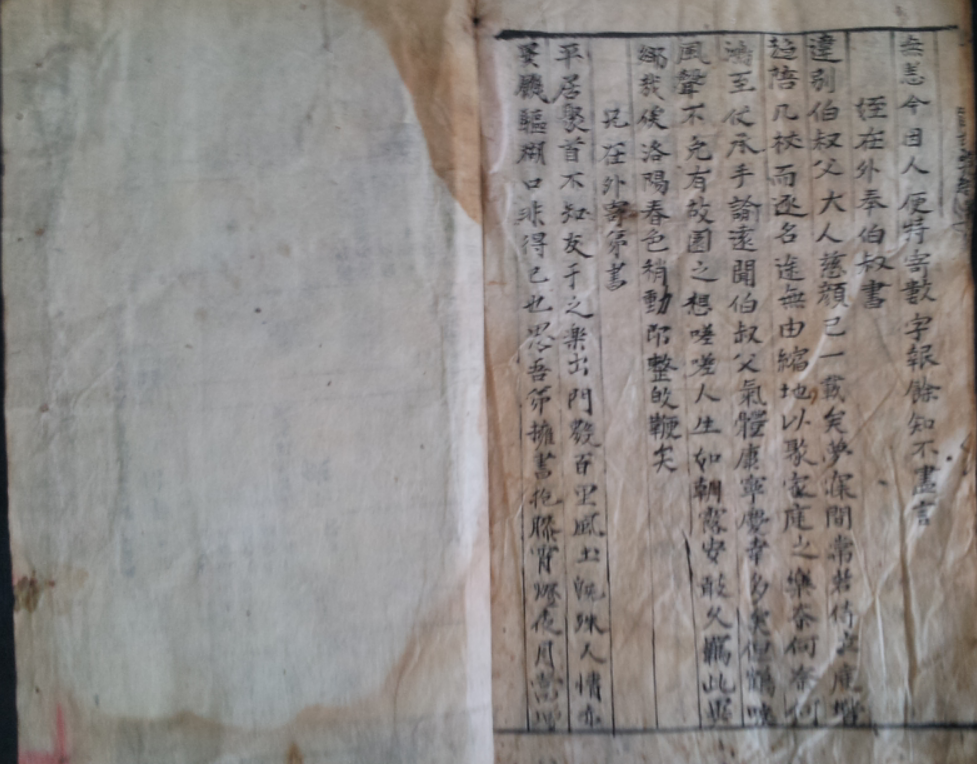 無恙今因人便特寄數字報餘知不盡言
姪在外奉伯叔書
違別伯叔父大人慈顔已一載矣夢寐間常若侍立庭
趋陪几杖而逐名途無由縮地以聚家庭之樂奈何奈何
鴻至仗承手諭遠聞伯叔父氣體康寧慶幸多矣但鶴唳
風聲不免有故園之想嗟嗟人生如朝露安敢久羈此
鄉哉俟洛陽春色稍動即整的鞭矣
兄在外寄弟書
平居聚首不知友于之樂出門數百里風土既殊人情亦
異驅糊口非得已也思吾弟擁書抱膝宵燈夜月